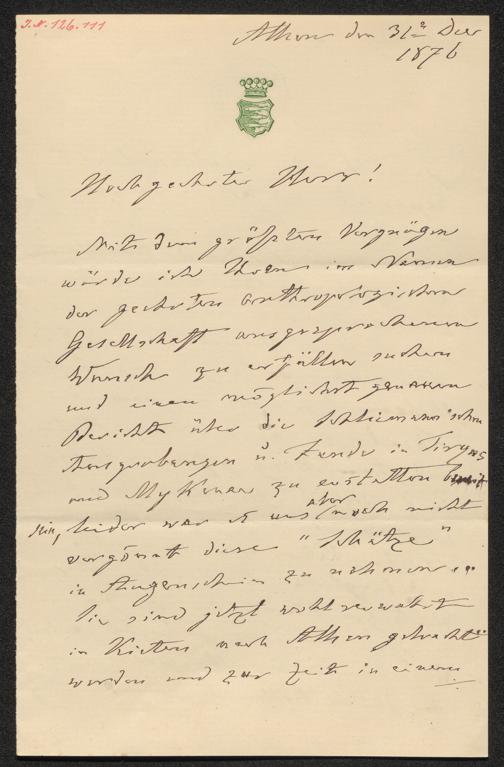 J.N. 126.111
Athen den 31ᵗ Dec
1876
Hochgeehrter Herr!
Mit dem größten Vergnügen
würde ich Ihren im Namen
der geehrten anthropologischen
Gesellschaft ausgesprochenen
Wunsch zu erfüllen suchen
und einen möglichst genauen
Bericht über die Schliemann'schen
Ausgrabungen u. Funde in Tiryns
und Mykenae zu erstatten bereit
sein, leider war es uns aber noch nicht
vergönnt diese "Schätze"
in Augenschein zu nehmen
Sie sind jetzt wohlverwahrt
in Kisten nach Athen gebracht
worden und zur Zeit in einem